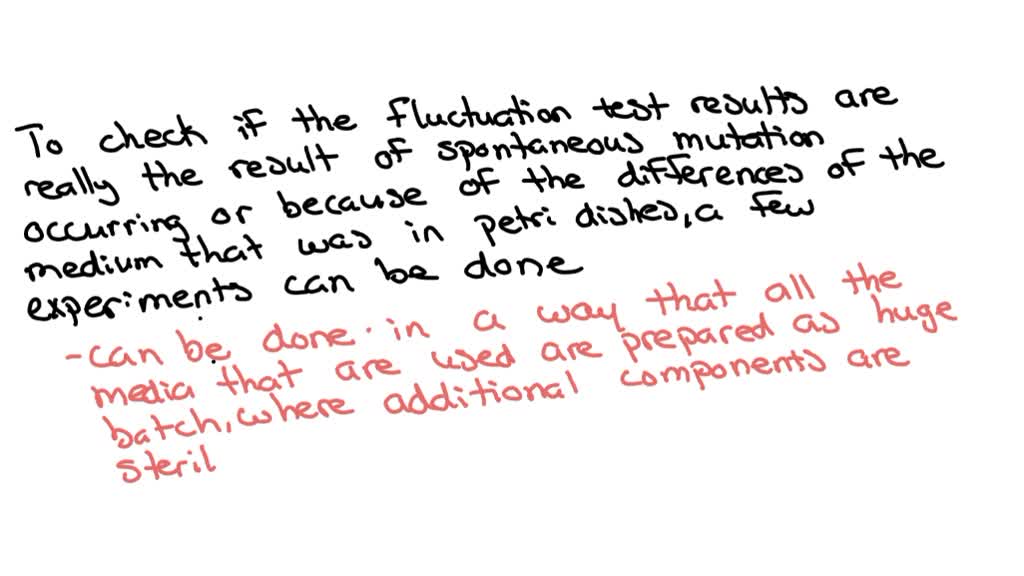 To check if the fluctuation test results are
really the result of spontaneous mutation
occurring or because of the differences of the
medium that was in petri dishes, a few
experiments can be done
- can be done in a way that all the
media that are used are prepared as huge
batch, where additional components are
steril